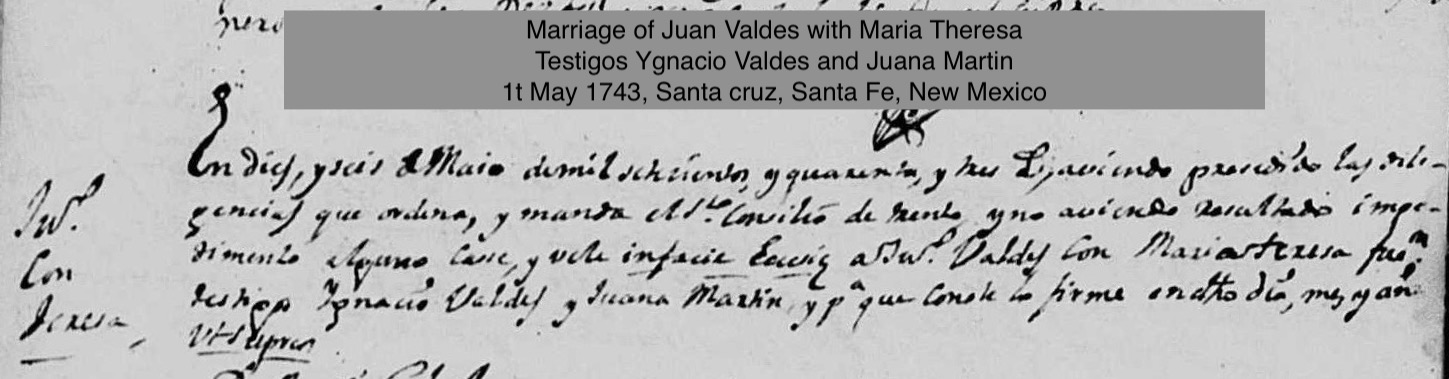 pero
Marriage of Juan Valdes with Maria Theresa
Testigos Ygnacio Valdes and Juana Martin
1t May 1743, Santa cruz, Santa Fe, New Mexico
En dies, y seis de Maio de mil setecientos, y quarenta, y tres aviendo presedido las dili-
gencias que ordena, y manda el Sto. Consilio de trento y no aviendo resultado impe-
dimento alguno Case, y vele infacie Eccsię a Jun. Valdes Con Maria teresa fuen.
testigos Ygnacio Valdes y Juana Martin, y pa. que Conste lo firme en dho dia, mes, y año
Vt Supra
Jun.
Con
Teresa,